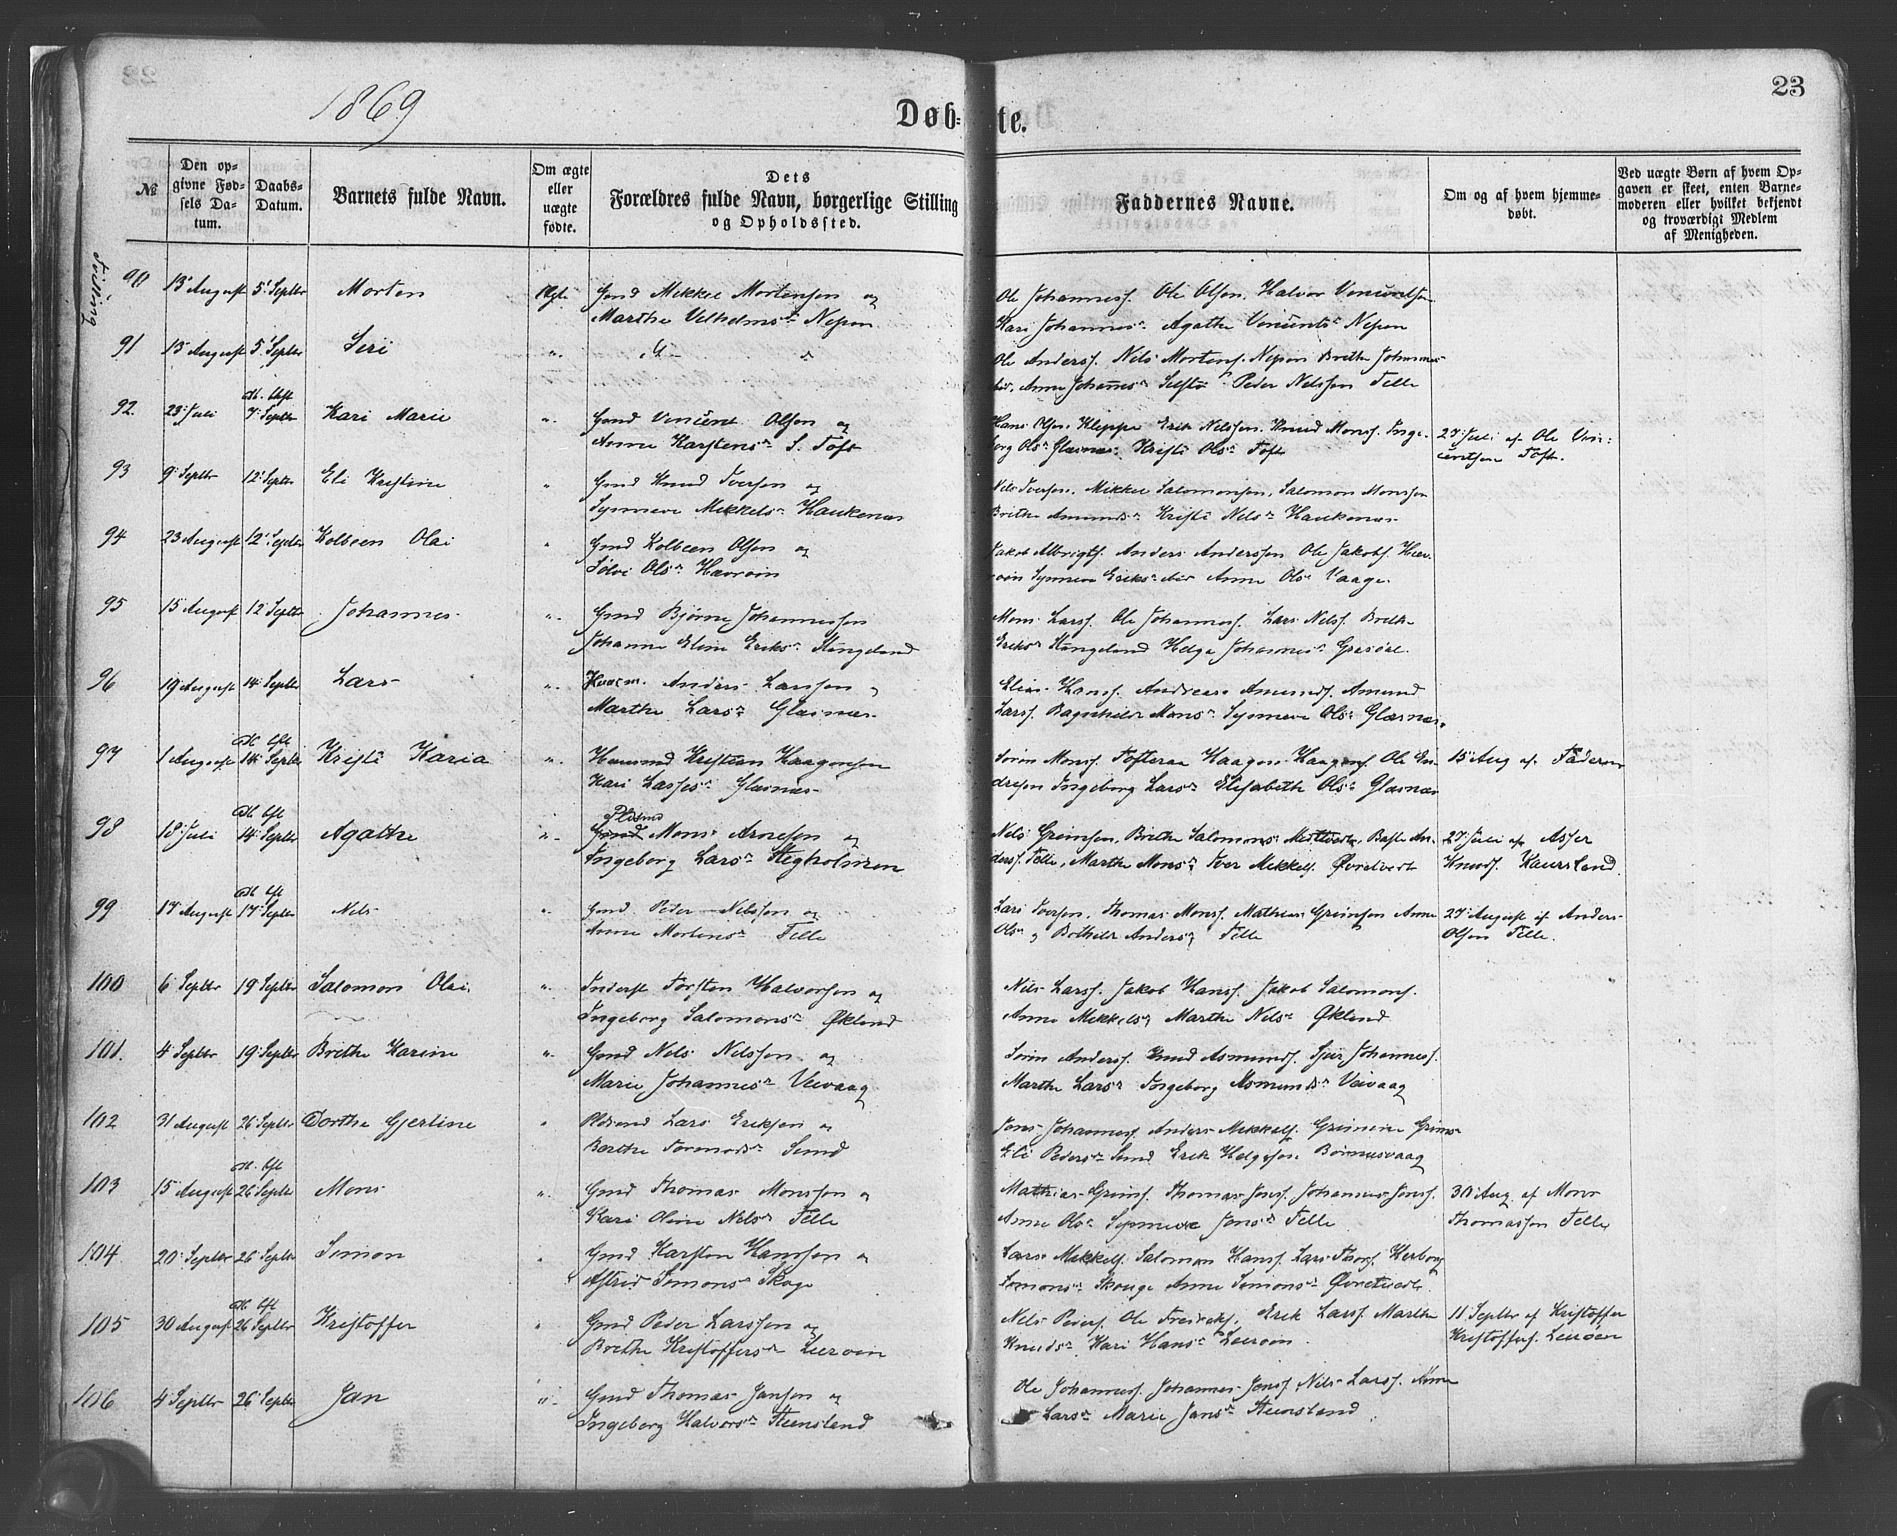 1869
Døb- te.
23
№
Den opgivne Fødsels Datum.
Daabs-Datum.
Barnets fulde Navn.
Om ægte eller uægte fødte.
Dets Forældres fulde Navn, borgerlige Stilling og Opholdssted.
Faddernes Navne.
Om og af hvem hjemmedøbt.
Ved uægte Børn af hvem Opgaven er skeet, enten Barnemoderen eller hvilket bekjendt og troværdigt Medlem af Menigheden.
Tvilling
90 13 August 5 Septbr Morten Ægte Gmd Mikkel Mortensen og
Marthe Vilhelmsdr Nepen
Ole Johanness. Ole Olsen. Halvor
Kari Johannesdr Agathe Vincentsdr Nepen
91 13 August 5 Septbr Siri "
Ole Anderss. Nels Mortens. Nepen Brithe Johannes-
dr. Anne Johannesdr Selstø Peder Nilssen Telle
92. 23 Juli 7 Septbr Kari Marie " Gmd Vincent Olsen og
Anne Karstensdr S. Toft
Hans Olsen. Kleppe Erik Nilssen. Knud Mons. Inge-
borg Olsdr Glæsnæs. Kristi Olsdr Toft
27 Juli af Ole Vin-
centsen Toft.
93 9 Septbr 12 Septbr Eli Kristine " Gmd Knud Iversen og
Synneve Mikkelsdr Haukenæs
Nils Iversen. Mikkel Salomonsen. Salomon Monssen
Brithe Amundsdr Kristi Nilsdr Haukenæs
94 23 August 12 Septbr Kolbeen Olai " Gmd Kolbeen Olsen og
Sølvi Olsdr Hævrøin
Jakob Albrigts. Anders Anderssen Ole Jakobs. Hæv-
røin Synneve Eriksdr Anne Olsdr Vaage
95 15 August 12 Septbr Johannes " Gmd Bjørne Johannessen
Johanne Eline Eriksdr Stangeland
Mons Larss. Ole Johanness. Lars Nils. Brithe
Eriksdr Stangeland Helga Johannesdr
96 19 August 14 Septbr Lars " Anders Larssen og
Marthe Larsdr Glæsnæs
Elias Hans. Andreas Amunds. Amund
Larss. Ragnhilde Monsdr Synneve Olsdr Glæsnæs.
97 1 August 14 Septbr Kristi Karia " Huusmd Kristian Haagensen
Kari Lassesdr Glæsnæs
Sørin Mons. Tofterøe Haagen Haagens Ole En-
dresen Ingeborg Larsdr Elisabethe Olsdr Glæsnæs
15 Aug af Faderen
98 18 Juli 14 Septbr Agathe " Gmd Mons Arnesen og
Ingeborg Larsdr Stegholmen
Nels Grimsen, Brithe Salomonsdr An-
derss. Telle, Marthe Monsdr Iver Mikkels. Øvretvedt
27 Juli af Asser
Knuds. Kaursland.
99 17 August 17 Septbr Nels " Gmd Peder Nilssen og
Anne Mortensdr Telle
Lars Iversen. Thomas Mons. Mathias Grimsen Anne
Olsdr og Bothilde Andersdr Telle
27 August af Anders
Olsen Telle.
100 6 Septbr 19 Septbr Salomon Olai. " Inderst Torsten Halvorsen og
Ingeborg Salomonsdr Økland
Nils Larss. Jakob Hans. Jakob Salomons.
Anne Mikkelsdr Marthe Nilsdr Økland
101. 4 Septbr 19 Septbr Brithe Karine " Gmd Nels Nelssen og
Marie Johannesdr Veivaag
Sørin Anderss. Knud Asmunds. Sjur Johanness.
Marthe Larsdr Ingeborg Asmundsdr Veivaag
102 31 August 26 Septbr Dorthe Gjertine " Pladsmd Lars Eriksen og
Barthe Tormodsdr Sund
Jens Johanness. Anders Mikkels. Grims-
Eli Pedersdr Sund Erik Helgesen.
103 15 August 26 Septbr Mons " Gmd Thomas Monssen og
Kari Oline Nelsdr Telle
Mathias Grims. Thomas Jens. Johannes Jens.
Anne Olsdr Synneve Jensdr Telle
30 Aug af Mons
Thomassen Telle
104. 20 Septbr 26 Septbr Simon " Gmd Karsten Hanssen og
Astrid Simonsdr Skoge
Lars Mikkels. Salomon Hans. Lars Thors. Herborg
Simonsdr Skouge Anne Simonsdr Øvretvedt.
105 30 August 26 Septbr Kristoffer " Gmd Peder Larssen og
Brithe Kristoffersdr Leerøin
Nels Peders. Ole Fredriks. Erik Larss. Marthe
Knudsdr. Kari Hansdr Leerøin.
11 Septbr af Kristoffer
Kristoffers. Leerøen
106 4 Septbr 26 Septbr Jan " Gmd Thomas Jansen og
Ingeborg Halvorsdr Steensland
Ole Johanness. Johannes Jens. Nils Larss. Anne
Larsdr Marie Jansdr Steensland